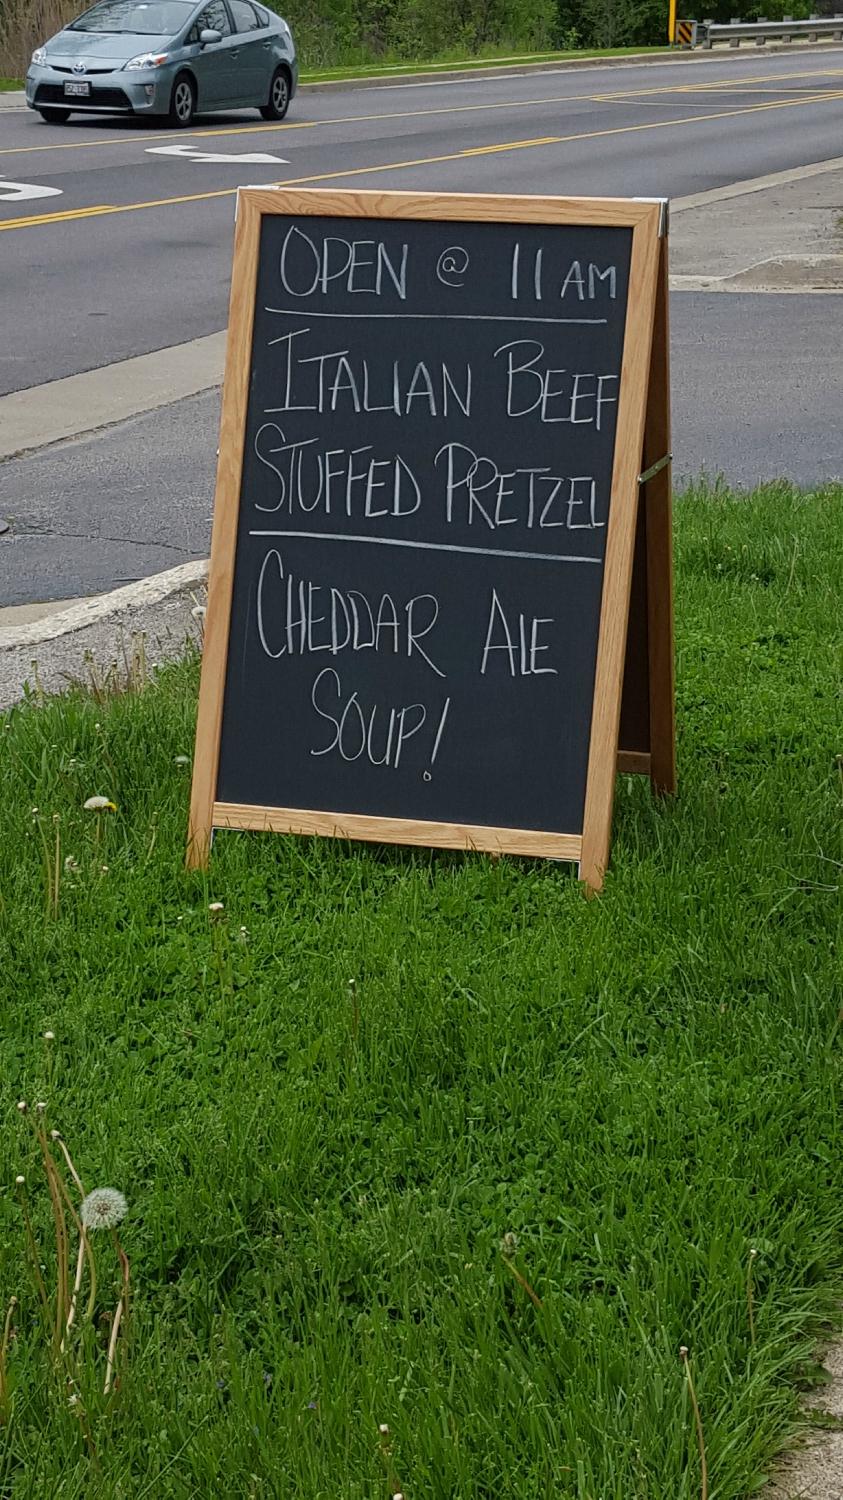 OPEN @ 11 AM
ITALIAN BEEF
STUFFED PRETZEL
CHEDDAR ALE
SOUP!